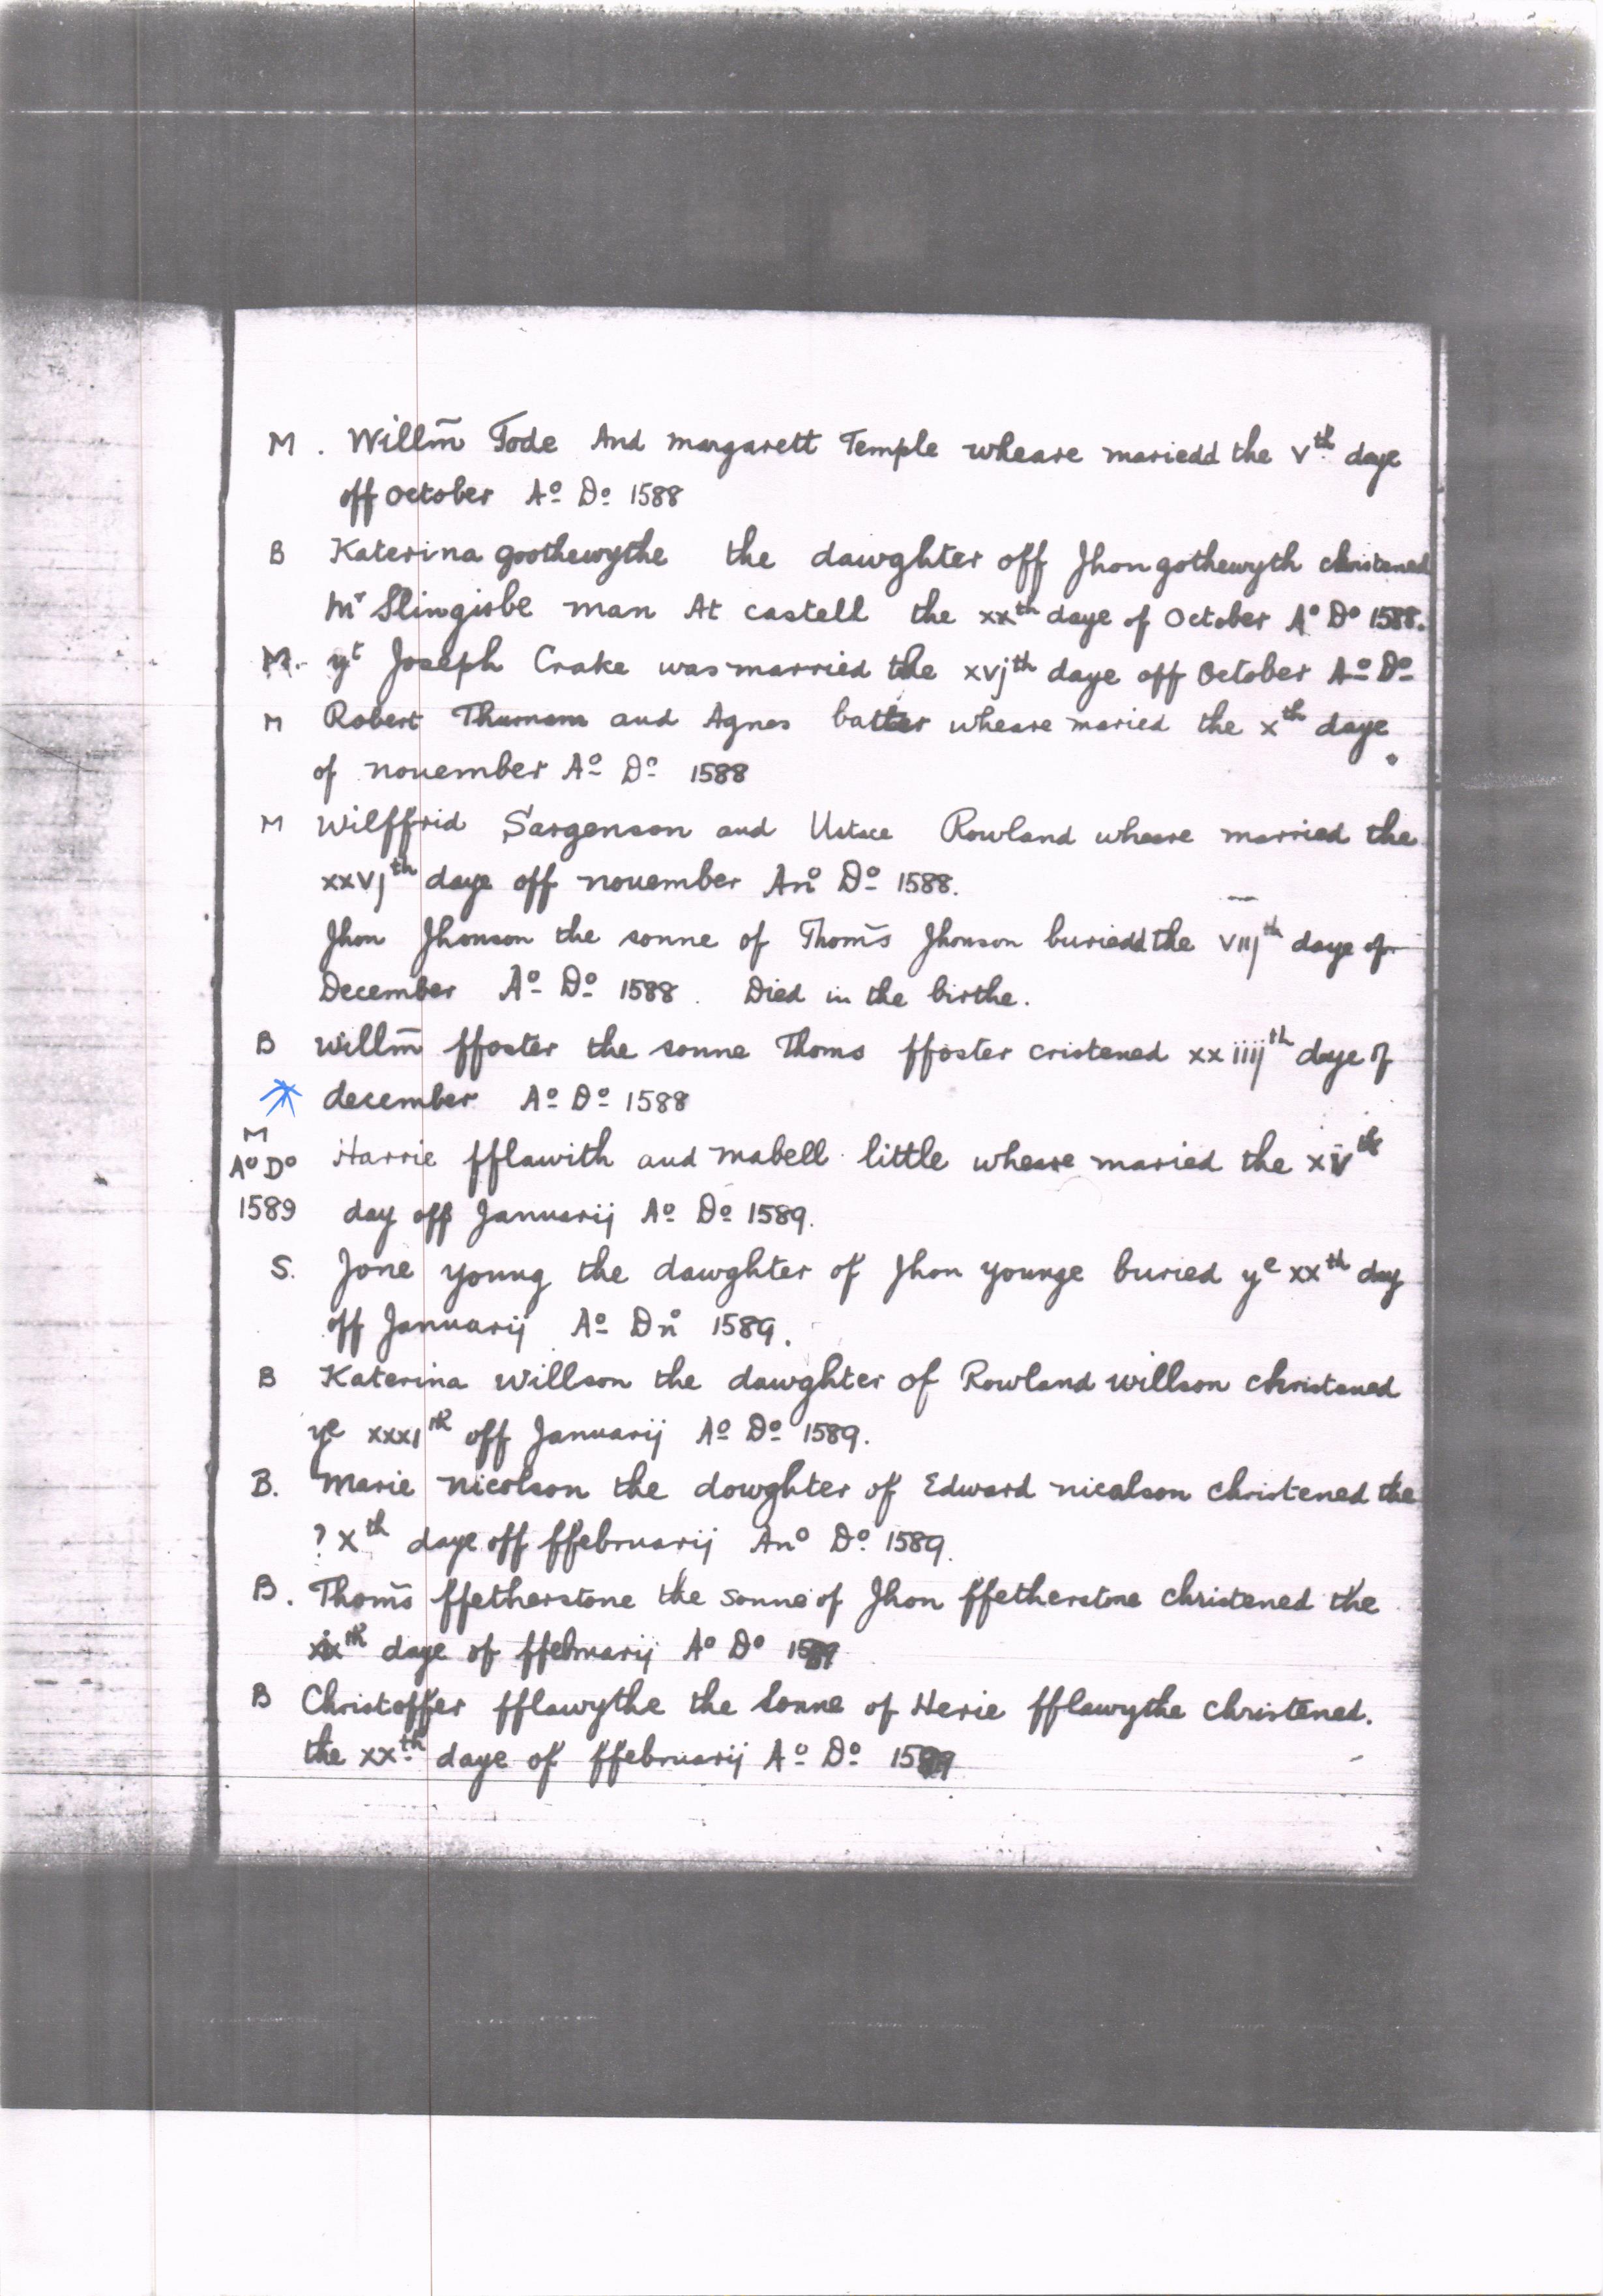 M . Willm̄ Tode And margarett Temple wheare mariedd the Vth daye
off October Ao Do 1588
B Katerina goothewythe the dawghter off Jhon gothewyth christened
Mr Slingisbe man At castell the xxth daye of October Ao Do 1588.
M. yt Joseph Crake was married the xvjth daye off October Ao Do
M Robert and Agnes batter wheare maried the xth daye
of nouember Ao Do 1588
M Wilffrid Sargenson and Rowland wheare married the
xxvjth daye off nouember Ano Do 1588.
Jhon Jhonson the sonne of Thom̄s Jhonson buriedd the viijth daye of
December Ao Do 1588. Died in the birthe.
B willm̄ ffoster the sonne Thoms ffoster cristened xxiiijth daye of
december Ao Do 1588
M
Ao Do Harrie fflawith and mabell little wheare maried the xvth
1589 day off Januarij Ao Do 1589.
S. Jone young the dawghter of Jhon younge buried ye xxth day
off Januarij Ao Dno 1589.
B Katerina Willson the dawghter of Rowland willson christened
ye xxxith off Januarij Ao Do 1589.
B. Marie nicolson the dowghter of Edward nicalson christened the
? Xth daye off ffebruarij Ano Do 1589.
B. Thom̄s ffetherstone the sonne of Jhon ffetherstone christened the
daye of ffebruarij Ao Do 1589
B Christoffer fflawythe the sonne of Herie fflawythe christened.
the xxth daye of ffebruarij Ao Do 1589